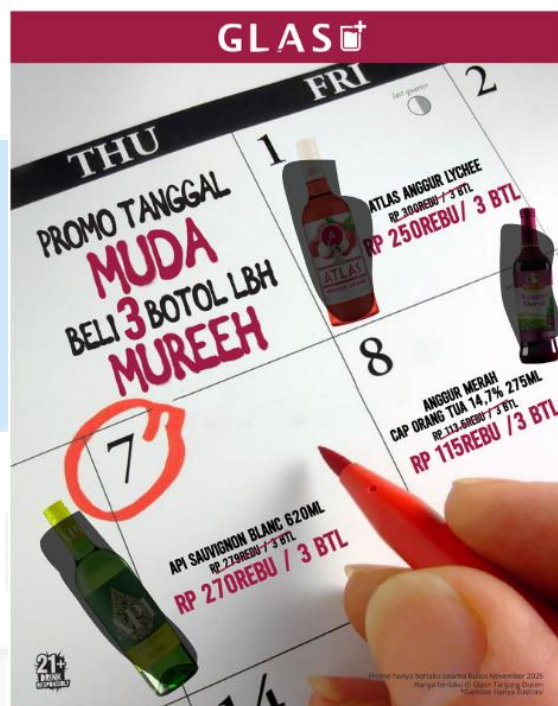 GLASU+
THU
FRI
2
1
last quarter
PROMO TANGGAL
MUDA
BELI 3 BOTOL LBH
MUREEH
ATLAS ANGGUR LYCHEE
RP 300REBU / 3 BTL
RP 250REBU/ 3 BTL
ATLAS
8
ANGGUR MERAH
CAP ORANG TUA 14,7% 275ML
RP 113.6REBU / 3 BTL
RP 115REBU /3 BTL
7
API SAUVIGNON BLANC 620ML
RP 279REBU / 3 BTL
RP 270REBU / 3 BTL
21+
DRINK
RESPONSIBLY
14
Promo hanya berlaku selama bulan November 2025
Hanya berlaku di Glasn Tanjung Duren
*Gambar Hanya Ilustrasi